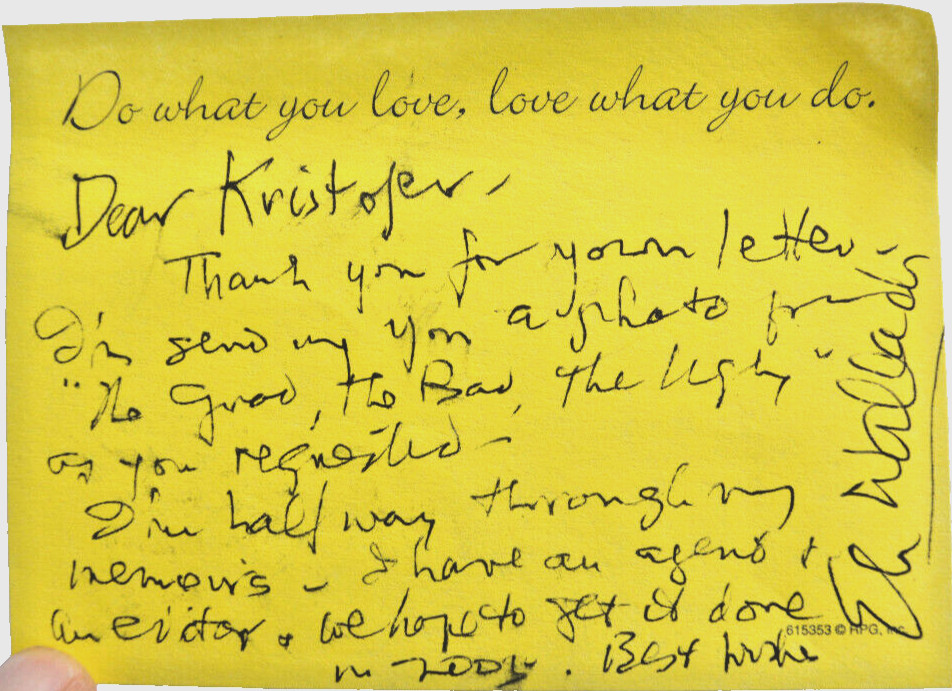 Do what you love, love what you do.
Dear Kristofer -
Thank you for your letter -
I'm sending you a photo from
"The Good, the Bad, the Ugly"
as you requested -
I'm half way through my
memoirs - I have an agent &
an editor & we hope to get it done
615353 © RPG, Inc.
in . Best wishes
Eli Wallach